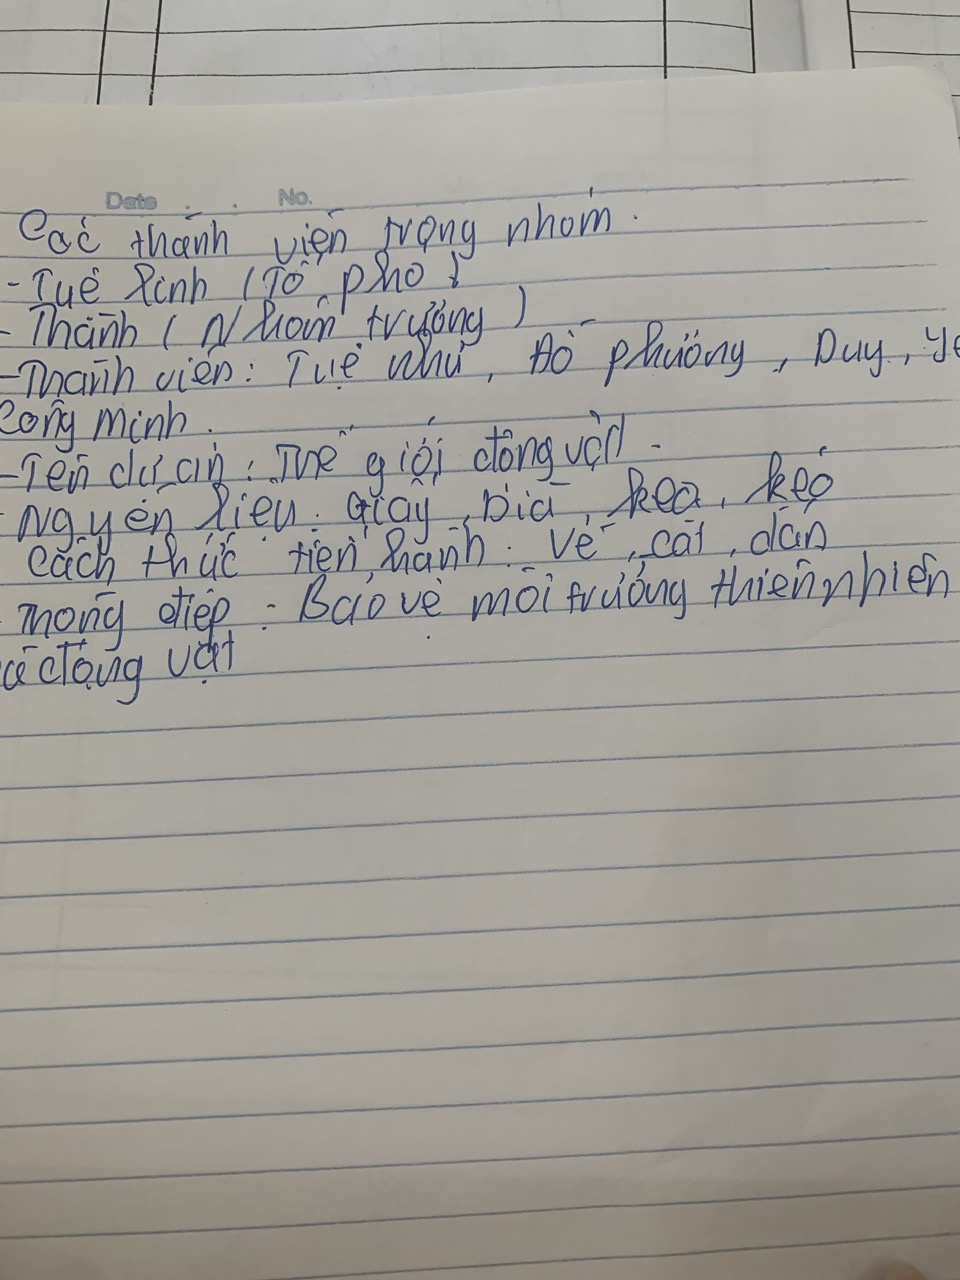 Date . . No.
Các thành viên trong nhóm.
- Tuệ Linh (Tổ phó)
- Thành (Nhóm trưởng)
- Thành viên: Tuệ Như, Đỗ Phương, Duy,
Công Minh.
- Tên dự án: Thế giới động vật.
- Nguyên liệu: Giấy, bìa, keo, kéo
Cách thức tiến hành: vẽ, cắt, dán
Thông điệp: Bảo vệ môi trường thiên nhiên
và động vật